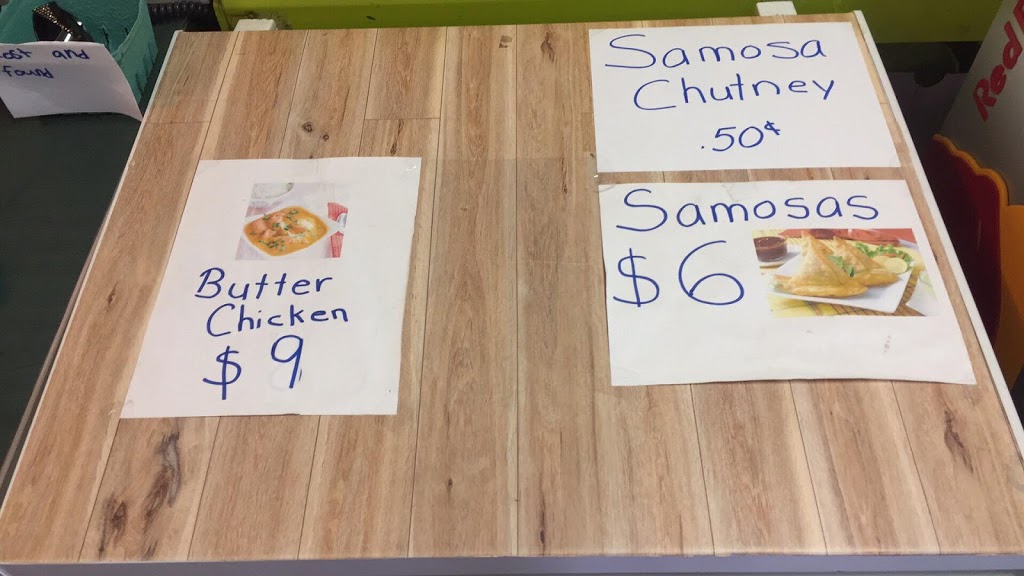 Lost and
found
Samosa
Chutney
.50¢
Samosas
$6
Butter
Chicken
$9
Red